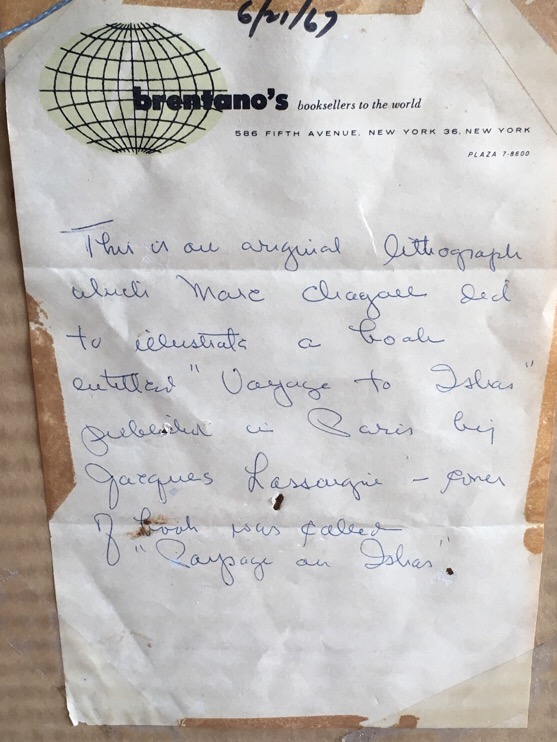 6/21/67
brentano's booksellers to the world
586 FIFTH AVENUE, NEW YORK 36, NEW YORK
PLAZA 7-8600
This is an original lithograph
which Marc Chagall did
to illustrate a book
entitled "Voyage to Islas"
published in Paris by
Jacques Lassaigne - cover
of book was called
"Paysage au Islas".